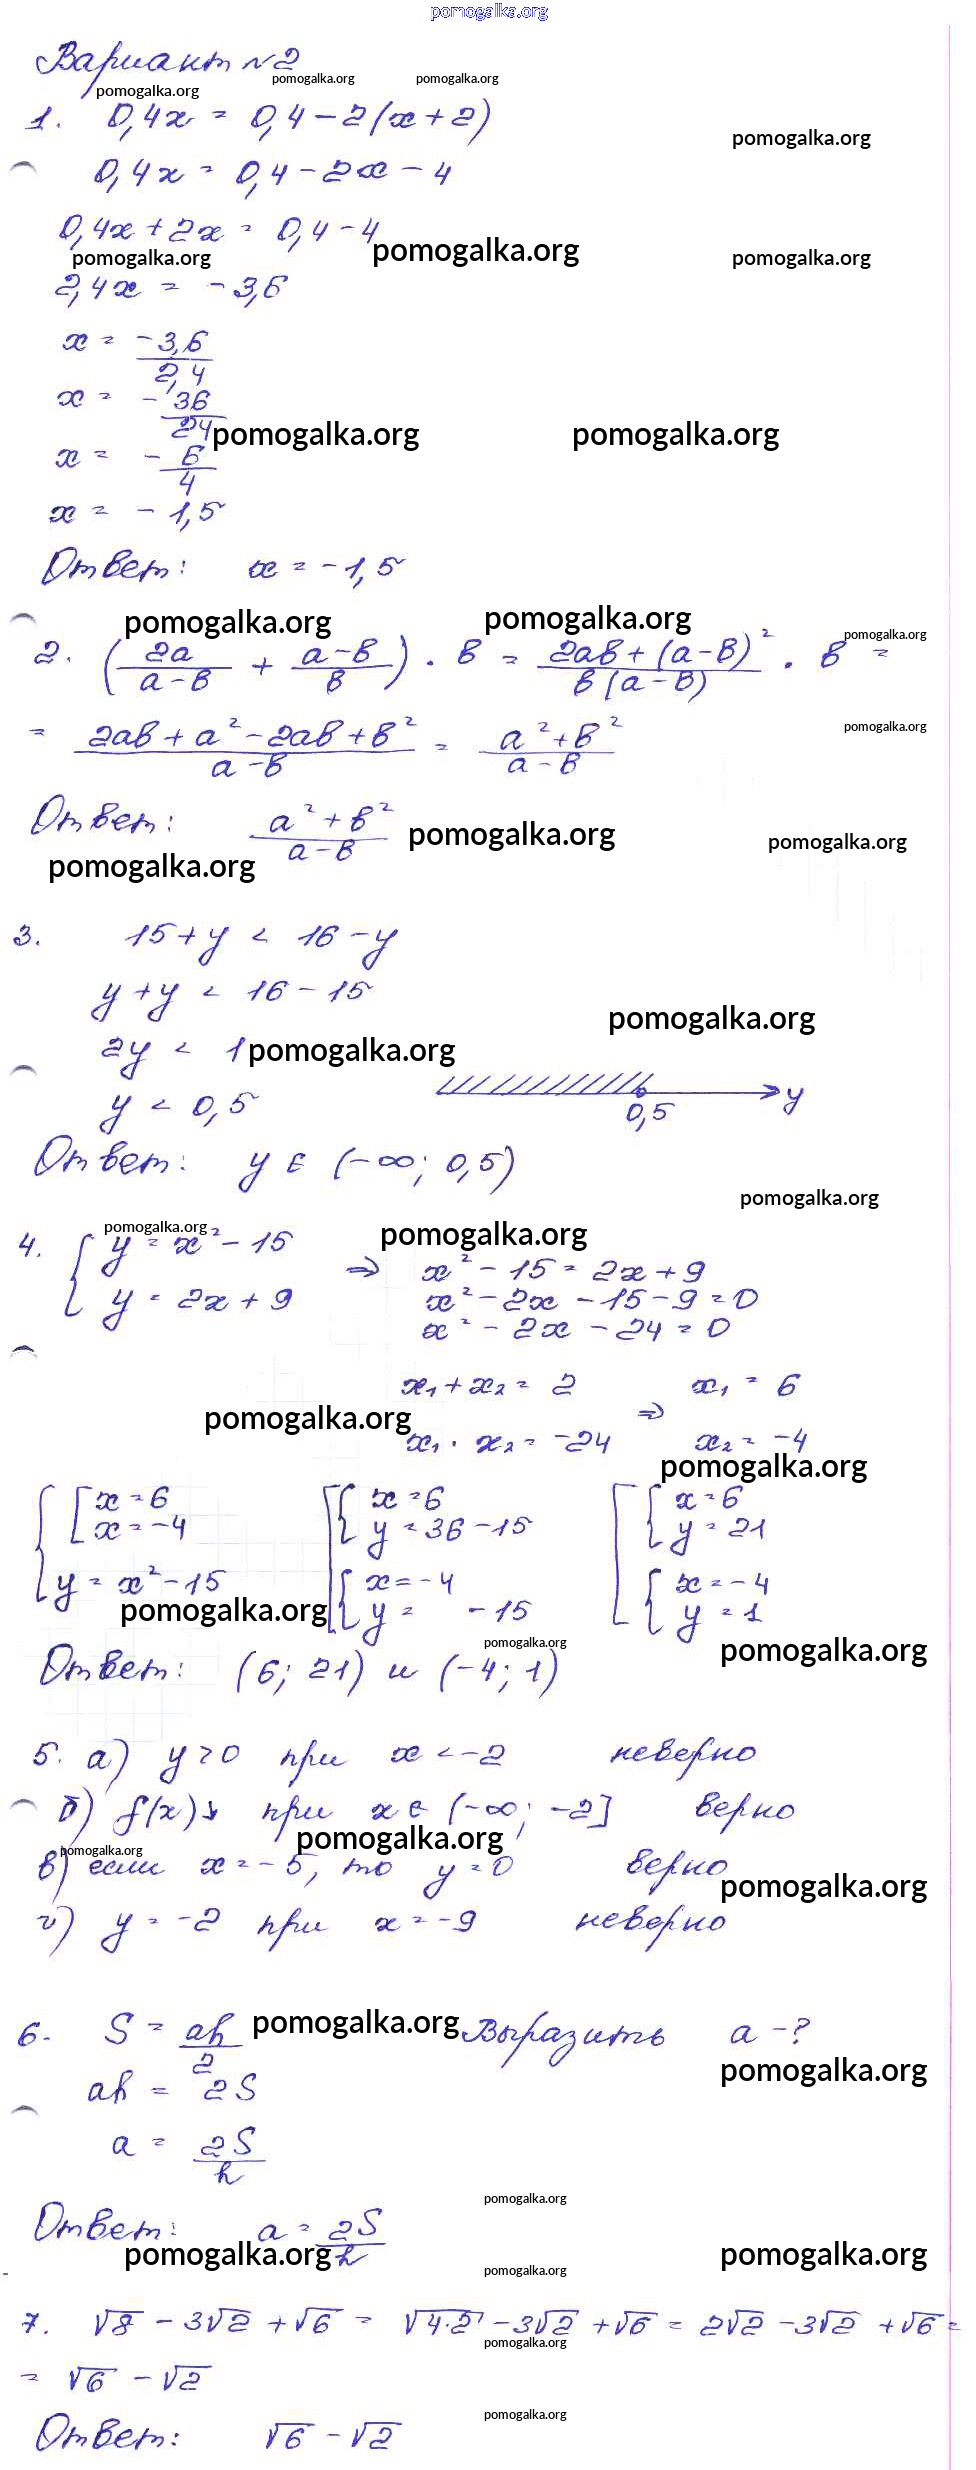 pomogalka.org
Вариант №2
pomogalka.org pomogalka.org pomogalka.org
1. 0,4x = 0,4 - 2(x + 2)
pomogalka.org
0,4x = 0,4 - 2x - 4
0,4x + 2x = 0,4 - 4
pomogalka.org pomogalka.org pomogalka.org
2,4x = -3,6
x = -3,6/2,4
x = -36/24
pomogalka.org pomogalka.org
x = -6/4
x = -1,5
Ответ: x = -1,5
pomogalka.org pomogalka.org pomogalka.org
2. (2a/(a-b) + (a-b)/b) · b = (2ab + (a-b)²)/(b(a-b)) · b =
= (2ab + a² - 2ab + b²)/(a-b) = (a² + b²)/(a-b)
pomogalka.org
Ответ: (a² + b²)/(a-b)
pomogalka.org pomogalka.org pomogalka.org
3. 15 + y < 16 - y
y + y < 16 - 15
pomogalka.org
2y < 1
pomogalka.org
y < 0,5
0,5 y
Ответ: y ∈ (-∞; 0,5)
pomogalka.org
pomogalka.org pomogalka.org
4. { y = x² - 15 ⇒ x² - 15 = 2x + 9
{ y = 2x + 9 x² - 2x - 15 - 9 = 0
x² - 2x - 24 = 0
x₁ + x₂ = 2 ⇒ x₁ = 6
pomogalka.org
x₁ · x₂ = -24 x₂ = -4
pomogalka.org
{ [ x = 6 [ { x = 6 [ { x = 6
x = -4 y = 36 - 15 y = 21
y = x² - 15 { x = -4 { x = -4
pomogalka.org y = - 15 y = 1
pomogalka.org pomogalka.org
Ответ: (6; 21) и (-4; 1)
5. а) y > 0 при x < -2 неверно
б) f(x)↓ при x ∈ (-∞; -2] верно
pomogalka.org pomogalka.org
в) если x = -5, то y = 0 верно
pomogalka.org
г) y = -2 при x = -9 неверно
6. S = ah/2 pomogalka.org Выразить a - ?
pomogalka.org
ah = 2S
a = 2S/h
pomogalka.org
Ответ: a = 2S/h
pomogalka.org pomogalka.org pomogalka.org
7. √8 - 3√2 + √6 = √(4·2) - 3√2 + √6 = 2√2 - 3√2 + √6 =
pomogalka.org
= √6 - √2
pomogalka.org
Ответ: √6 - √2